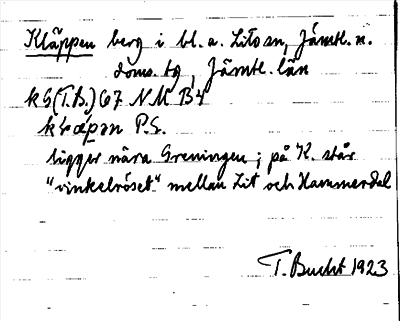 Kläppen berg i bl. a. Lits sn, Jämtl. n.
doms. tg, Jämtl. län
k G (T.B.) 67 NM B4
P.S.
ligger nära Greningen; på K. står
"vinkelröset" mellan Lit och Hammerdal
T. Bucht 1923